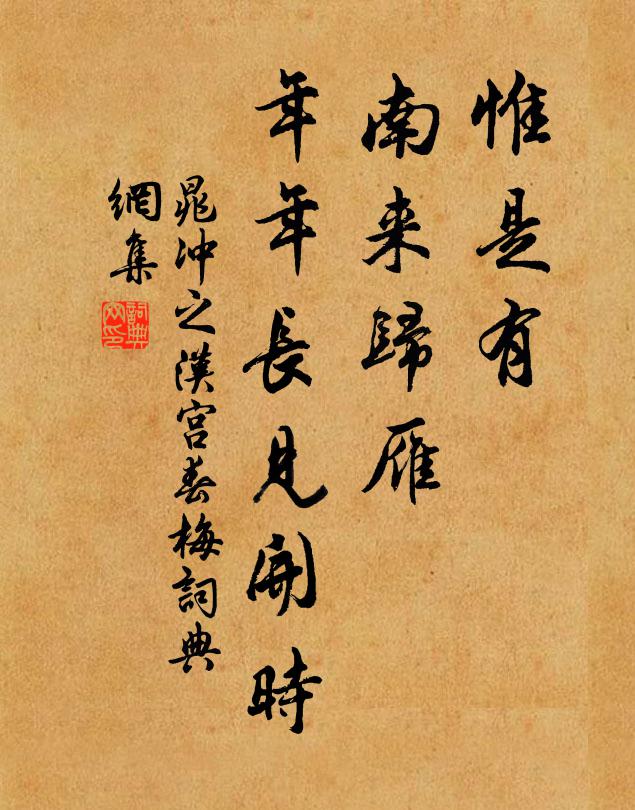 惟是有
南来歸雁
年年長見開時
晁冲之漢宮春梅詞典
網集
詞典